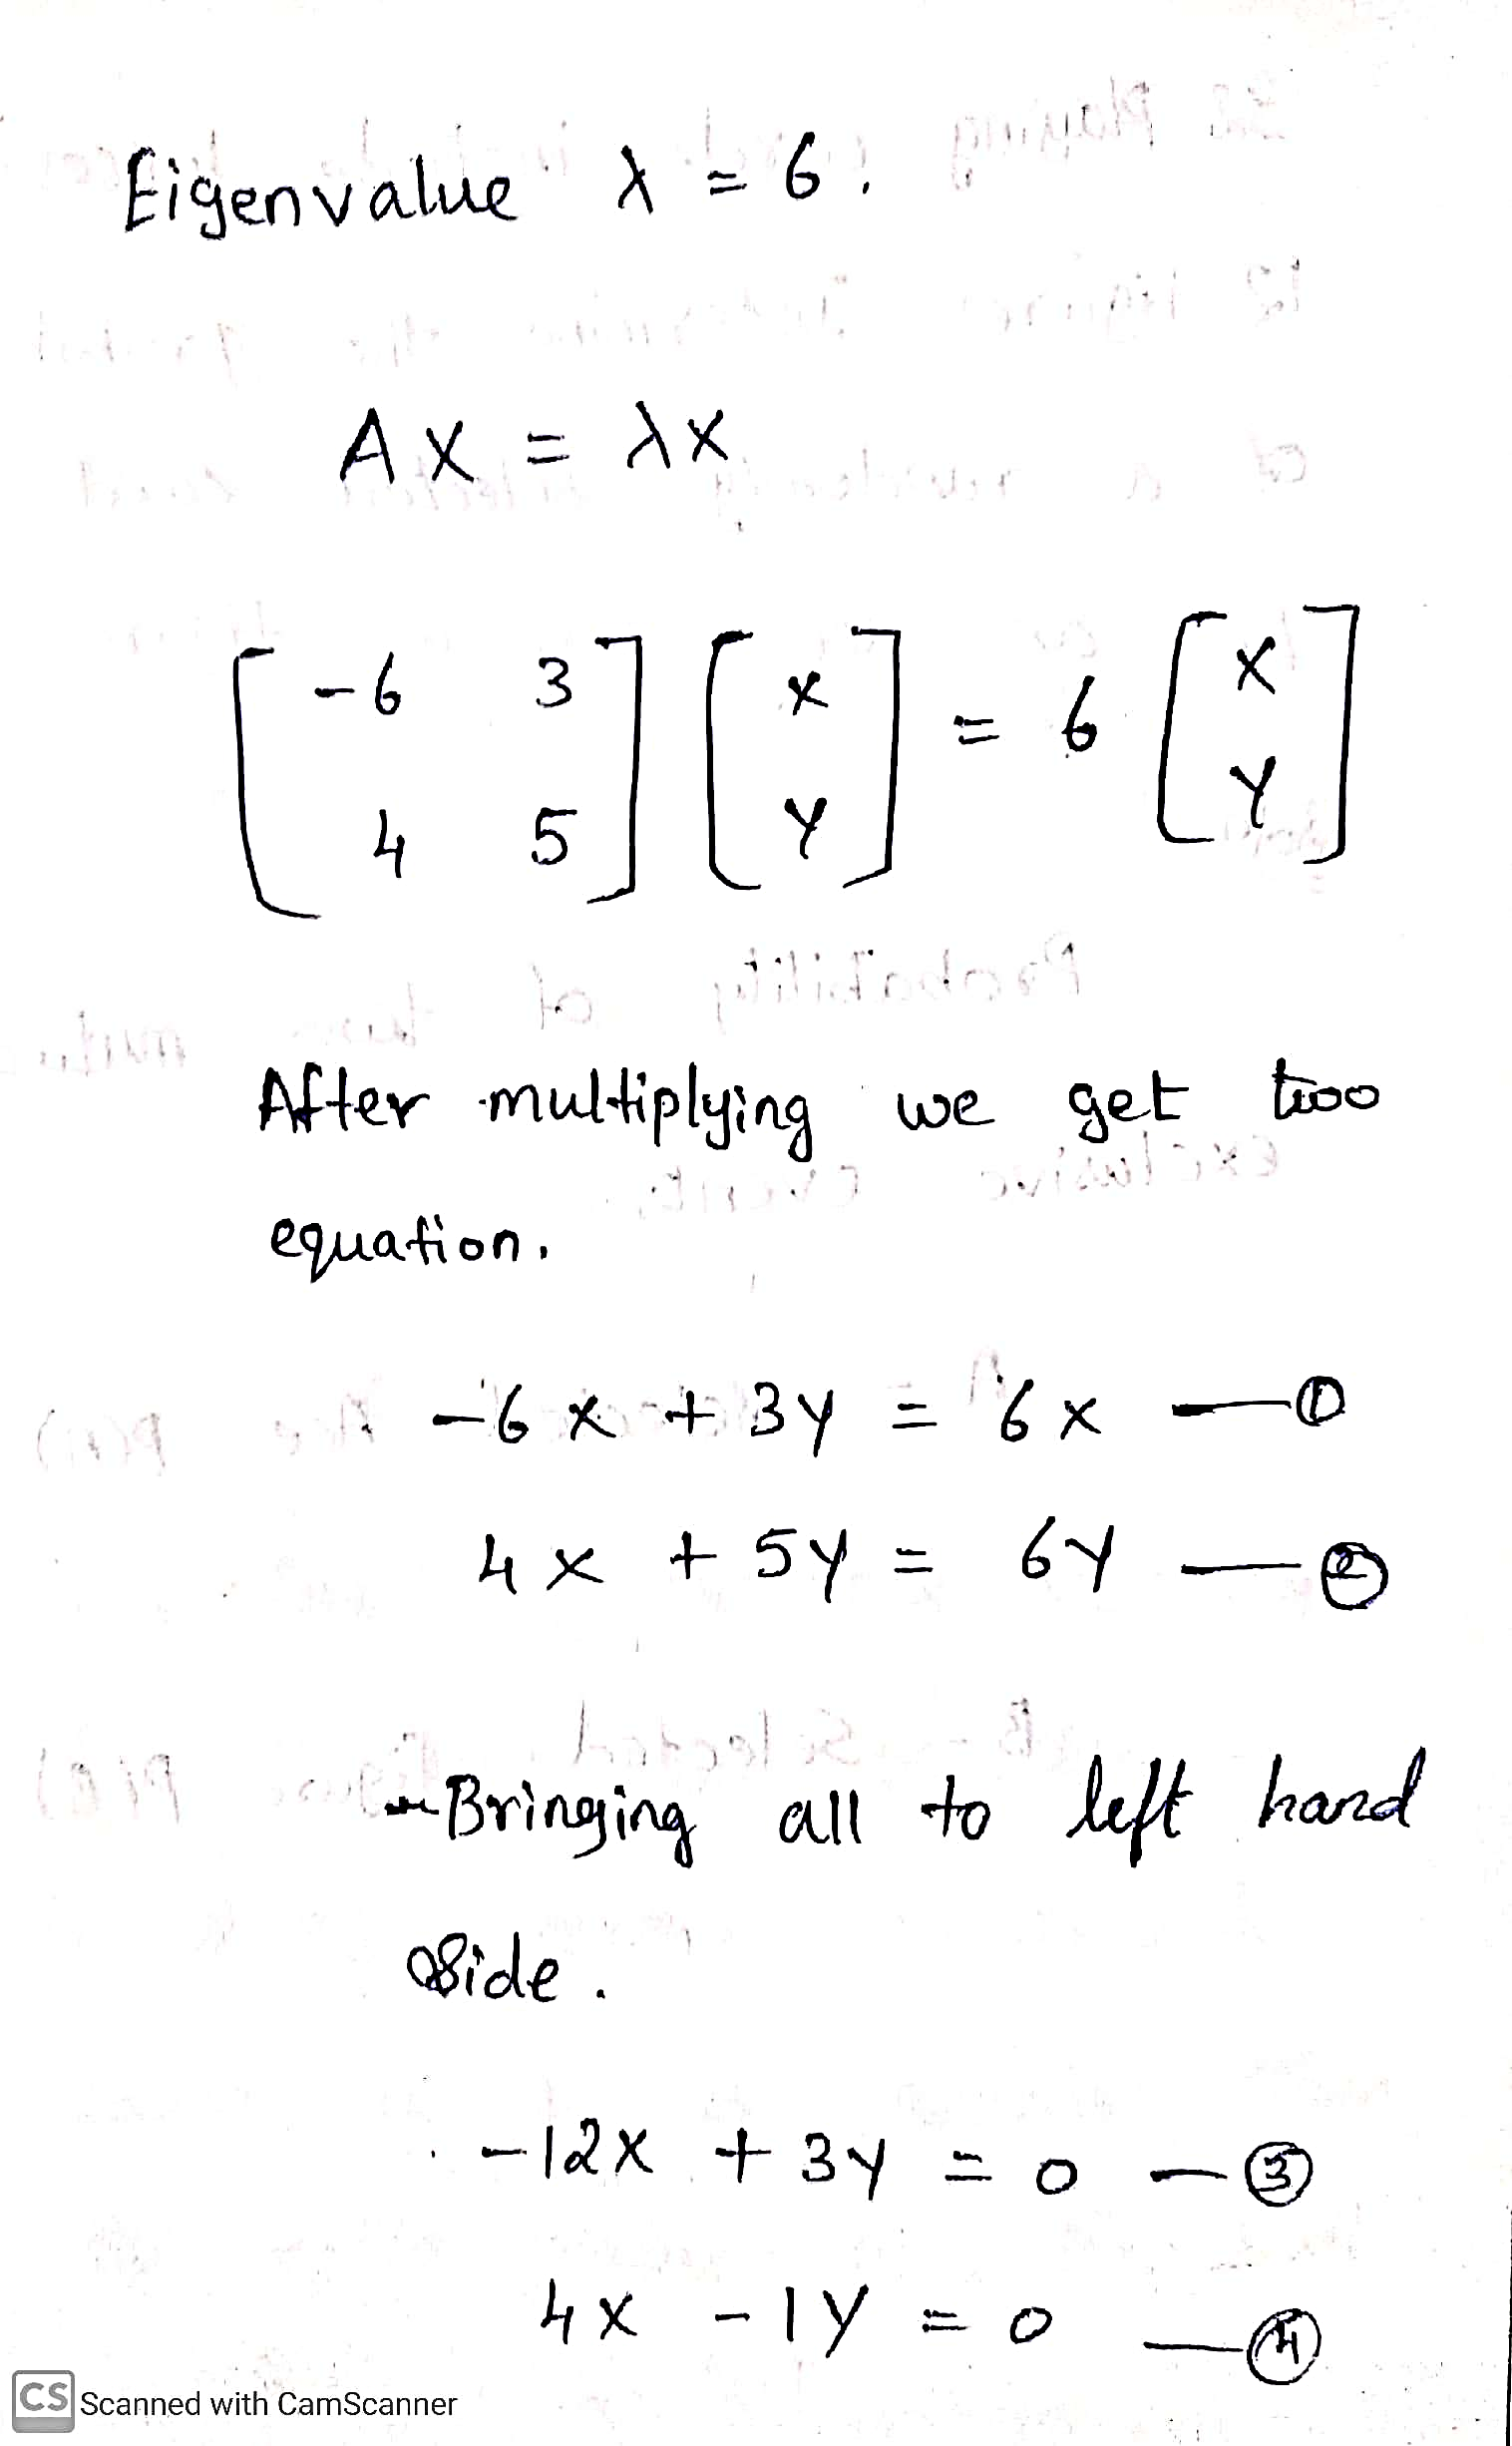 Eigenvalue λ = 6.
AX = λX
[ -6 3 ] [ X ] = 6 [ X ]
[ 4 5 ] [ Y ] [ Y ]
After multiplying we get two
equation.
-6x + 3y = 6x — ①
4x + 5y = 6y — ②
Bringing all to left hand
side.
-12x + 3y = 0 — ③
4x - 1y = 0 — ④
CS Scanned with CamScanner